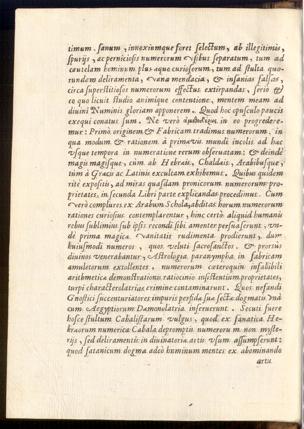 timum, sanum, innoxiumque foret selectum, ab illegitimis,
spurijs, ac perniciosis numerorum vsibus separatum, tum ad
cautelam hominum plus aquo curiosorum, tum ad stulta quo-
rundam deliramenta, vana mendacia, & insanias falsas,
circa superstitiosos numerorum effectus extirpandas, serio &
eo quo licuit studio animique contentione, mentem meam ad
diuini Numinis gloriam apponerem. Quod hoc opusculo paucis
exequi conatus sum. Ne verò in eo progredere-
mur: Primò originem & Fabricam tradimus numerorum, in
qua modum & rationem à primævis mundi incolis ad hæc
vsque tempora in numeratione rerum obseruatam; & deindè
magis magisque, cùm ab Hebræis, Chaldæis, Arabibusque,
tùm à Græcis ac Latinis excultam exhibemus. Quibus quidem
ritè expositis, ad miras quasdam promicorum numerorum pro-
prietates, in secunda Libri parte explicandas procedimus. Cùm
verò complures ex Arabum Schola, abditas horum numerorum
rationes curiosiùs contemplarentur, hinc certè aliquid humanis
rebus sublimius sub ipsis recondi sibi amenter persuaserunt, vn-
de prima magicæ vanitatis rudimenta prodierunt, dum
huiusmodi numeros, quos veluti sacrosanctos, & prorsus
diuinos venerabantur, Astrologiæ paranympha in fabricam
amuletorum extollentes, numerorum coterorumque insalubili
arithmetica demonstrationis ratiocinio insistentium proprietates,
turpi characterolatriæ crimine contaminarunt. Quos nefandi
Gnostici succenturiatores impuris perfidæ suæ sectæ dogmatis vnà
cum Ægyptiorum Dæmonolatria inseruerunt. Secuti fuere
hosce stultum Cabalistarum vulgus, quod ex fanatica He-
bræorum numerica Cabala depromptis numerorum non myste-
rijs, sed deliramentis in diuinatoria artis vsum assumpserunt;
quod satanicum dogma adeò humanum mentes ex abominando
artis